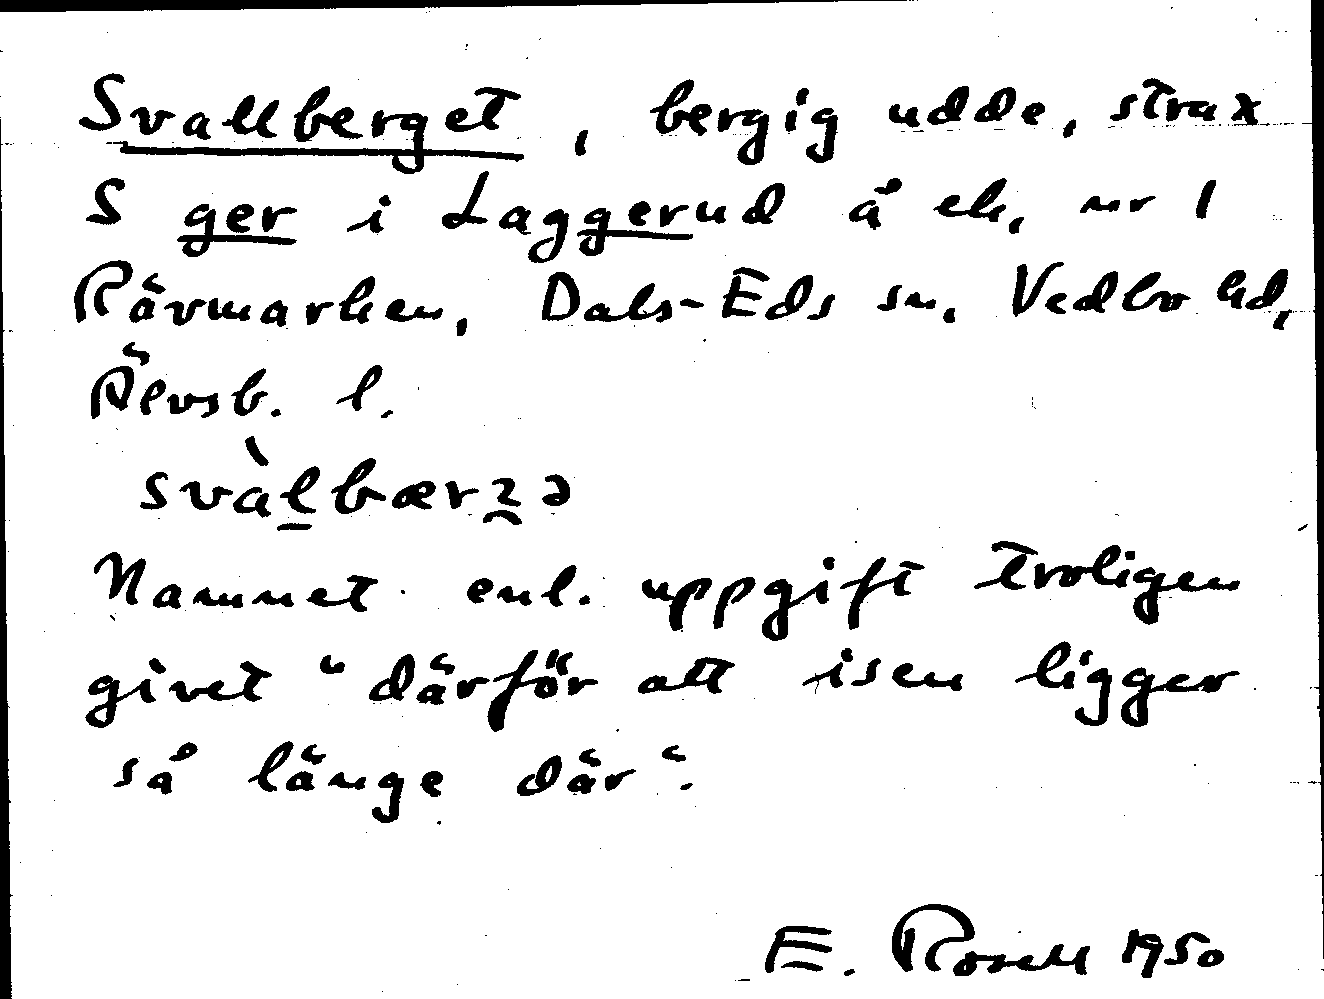 Svallberget, bergig udde, strax
S ger i Laggerud å ek. nr 1
Rävmarken, Dals-Eds sn. Vedbo hd,
Älvsb. l.
svàl̲bærʒ̯ə
Namnet enl. uppgift troligen
givet "därför att isen ligger
så länge där".
E. Rosell 1950